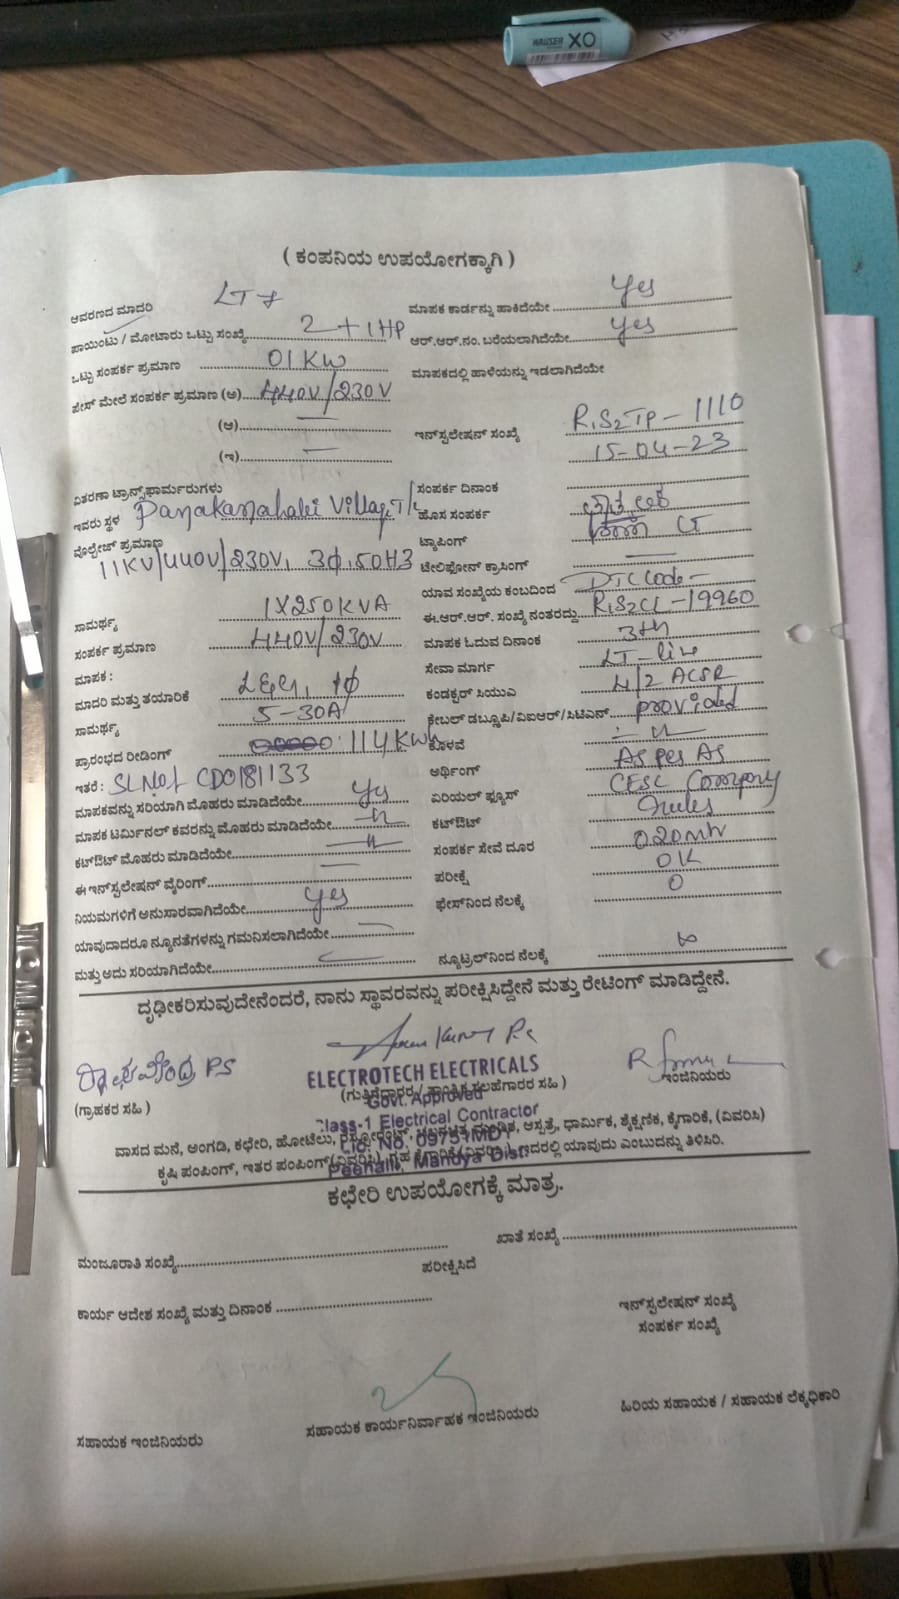 HAUSER XO
( ಕಂಪನಿಯ ಉಪಯೋಗಕ್ಕಾಗಿ )
ಆವರಣದ ಮಾದರಿ LT
ಮಾಪಕ ಕಾರ್ಡನ್ನು ಹಾಕಿದೆಯೇ Yes
ಪಾಯಿಂಟು / ಮೋಟಾರು ಒಟ್ಟು ಸಂಖ್ಯೆ 2 + 1 HP
ಆರ್.ಆರ್.ನಂ. ಬರೆಯಲಾಗಿದೆಯೇ Yes
ಒಟ್ಟು ಸಂಪರ್ಕ ಪ್ರಮಾಣ 01 KW
ಮಾಪಕದಲ್ಲಿ ಹಾಳೆಯನ್ನು ಇಡಲಾಗಿದೆಯೇ
ಫೇಸ್ ಮೇಲೆ ಸಂಪರ್ಕ ಪ್ರಮಾಣ (ಅ) 440V/230V
(ಆ)
(ಇ)
ಇನ್‌ಸ್ಟಲೇಷನ್ ಸಂಖ್ಯೆ R1S2TP-1110
15-04-23
ವಿತರಣಾ ಟ್ರಾನ್ಸ್‌ಫಾರ್ಮರುಗಳು
ಸಂಪರ್ಕ ದಿನಾಂಕ
ಇವರು ಸ್ಥಳ Panakanahalli Village
ಹೊಸ ಸಂಪರ್ಕ
ವೋಲ್ಟೇಜ್ ಪ್ರಮಾಣ
ಟ್ಯಾಪಿಂಗ್
11KV/440V/230V, 3Φ, 50HZ
ಟೆಲಿಫೋನ್ ಕ್ರಾಸಿಂಗ್
ಯಾವ ಸಂಖ್ಯೆಯ ಕಂಬದಿಂದ DTC Code -
ಸಾಮರ್ಥ್ಯ 1X250KVA
ಈ.ಆರ್.ಆರ್. ಸಂಖ್ಯೆ ನಂತರದ್ದು R1S2CL-19960
ಸಂಪರ್ಕ ಪ್ರಮಾಣ 440V/230V
ಮಾಪಕ ಓದುವ ದಿನಾಂಕ 3th
ಮಾಪಕ :
ಸೇವಾ ಮಾರ್ಗ LT-line
ಮಾದರಿ ಮತ್ತು ತಯಾರಿಕೆ L&G, 1Φ
ಕಂಡಕ್ಟರ್ ಸಿಯುಎ 4/2 ACSR
ಸಾಮರ್ಥ್ಯ 5-30A
ಕೇಬಲ್ ಡಬ್ಲ್ಯೂಪಿ/ವಿಐಆರ್/ಸಿಟಿಎನ್ provided
ಪ್ರಾರಂಭದ ರೀಡಿಂಗ್ 114KWh
ಕೊಳವೆ -"-
ಇತರೆ : SL No: CD0181133
ಅರ್ಥಿಂಗ್ As per AS
ಮಾಪಕವನ್ನು ಸರಿಯಾಗಿ ಮೊಹರು ಮಾಡಿದೆಯೇ Yes
ಏರಿಯಲ್ ಫ್ಯೂಸ್ CESC Company
ಮಾಪಕ ಟರ್ಮಿನಲ್ ಕವರನ್ನು ಮೊಹರು ಮಾಡಿದೆಯೇ -"-
ಕಟ್‌ಔಟ್ rules
ಕಟ್‌ಔಟ್ ಮೊಹರು ಮಾಡಿದೆಯೇ -"-
ಸಂಪರ್ಕ ಸೇವೆ ದೂರ 020mtr
ಈ ಇನ್‌ಸ್ಟಲೇಷನ್ ವೈರಿಂಗ್
ಪರೀಕ್ಷೆ OK
ನಿಯಮಗಳಿಗೆ ಅನುಸಾರವಾಗಿದೆಯೇ Yes
ಫೇಸ್‌ನಿಂದ ನೆಲಕ್ಕೆ 0
ಯಾವುದಾದರೂ ನ್ಯೂನತೆಗಳನ್ನು ಗಮನಿಸಲಾಗಿದೆಯೇ
ಮತ್ತು ಅದು ಸರಿಯಾಗಿದೆಯೇ
ನ್ಯೂಟ್ರಲ್‌ನಿಂದ ನೆಲಕ್ಕೆ ∞
ದೃಢೀಕರಿಸುವುದೇನೆಂದರೆ, ನಾನು ಸ್ಥಾವರವನ್ನು ಪರೀಕ್ಷಿಸಿದ್ದೇನೆ ಮತ್ತು ರೇಟಿಂಗ್ ಮಾಡಿದ್ದೇನೆ.
ರಾಘವೇಂದ್ರ PS
(ಗ್ರಾಹಕರ ಸಹಿ )
ELECTROTECH ELECTRICALS
(ಗುತ್ತಿಗೆದಾರರ / ತಾಂತ್ರಿಕ ಸಲಹೆಗಾರರ ಸಹಿ )
ಇಂಜಿನಿಯರು
Govt. Approved
Class-1 Electrical Contractor
ವಾಸದ ಮನೆ, ಅಂಗಡಿ, ಕಛೇರಿ, ಹೋಟೆಲು, ರೆಸ್ಟೋರೆಂಟ್, ಚಲನಚಿತ್ರ ಮಂದಿರ, ಆಸ್ಪತ್ರೆ, ಧಾರ್ಮಿಕ, ಶೈಕ್ಷಣಿಕ, ಕೈಗಾರಿಕೆ, (ವಿವರಿಸಿ)
Lic. No. 09751MDY
ಕೃಷಿ ಪಂಪಿಂಗ್, ಇತರ ಪಂಪಿಂಗ್ (ವಿವರಿಸಿ), ಗೃಹ ಕೈಗಾರಿಕೆ (ವಿವರಿಸಿ) ಇದರಲ್ಲಿ ಯಾವುದು ಎಂಬುದನ್ನು ತಿಳಿಸಿರಿ.
Peehalli, Mandya Dist
ಕಛೇರಿ ಉಪಯೋಗಕ್ಕೆ ಮಾತ್ರ.
ಮಂಜೂರಾತಿ ಸಂಖ್ಯೆ
ಖಾತೆ ಸಂಖ್ಯೆ
ಪರೀಕ್ಷಿಸಿದೆ
ಕಾರ್ಯ ಆದೇಶ ಸಂಖ್ಯೆ ಮತ್ತು ದಿನಾಂಕ
ಇನ್‌ಸ್ಟಲೇಷನ್ ಸಂಖ್ಯೆ
ಸಂಪರ್ಕ ಸಂಖ್ಯೆ
ಸಹಾಯಕ ಇಂಜಿನಿಯರು
ಸಹಾಯಕ ಕಾರ್ಯನಿರ್ವಾಹಕ ಇಂಜಿನಿಯರು
ಹಿರಿಯ ಸಹಾಯಕ / ಸಹಾಯಕ ಲೆಕ್ಕಧಿಕಾರಿ